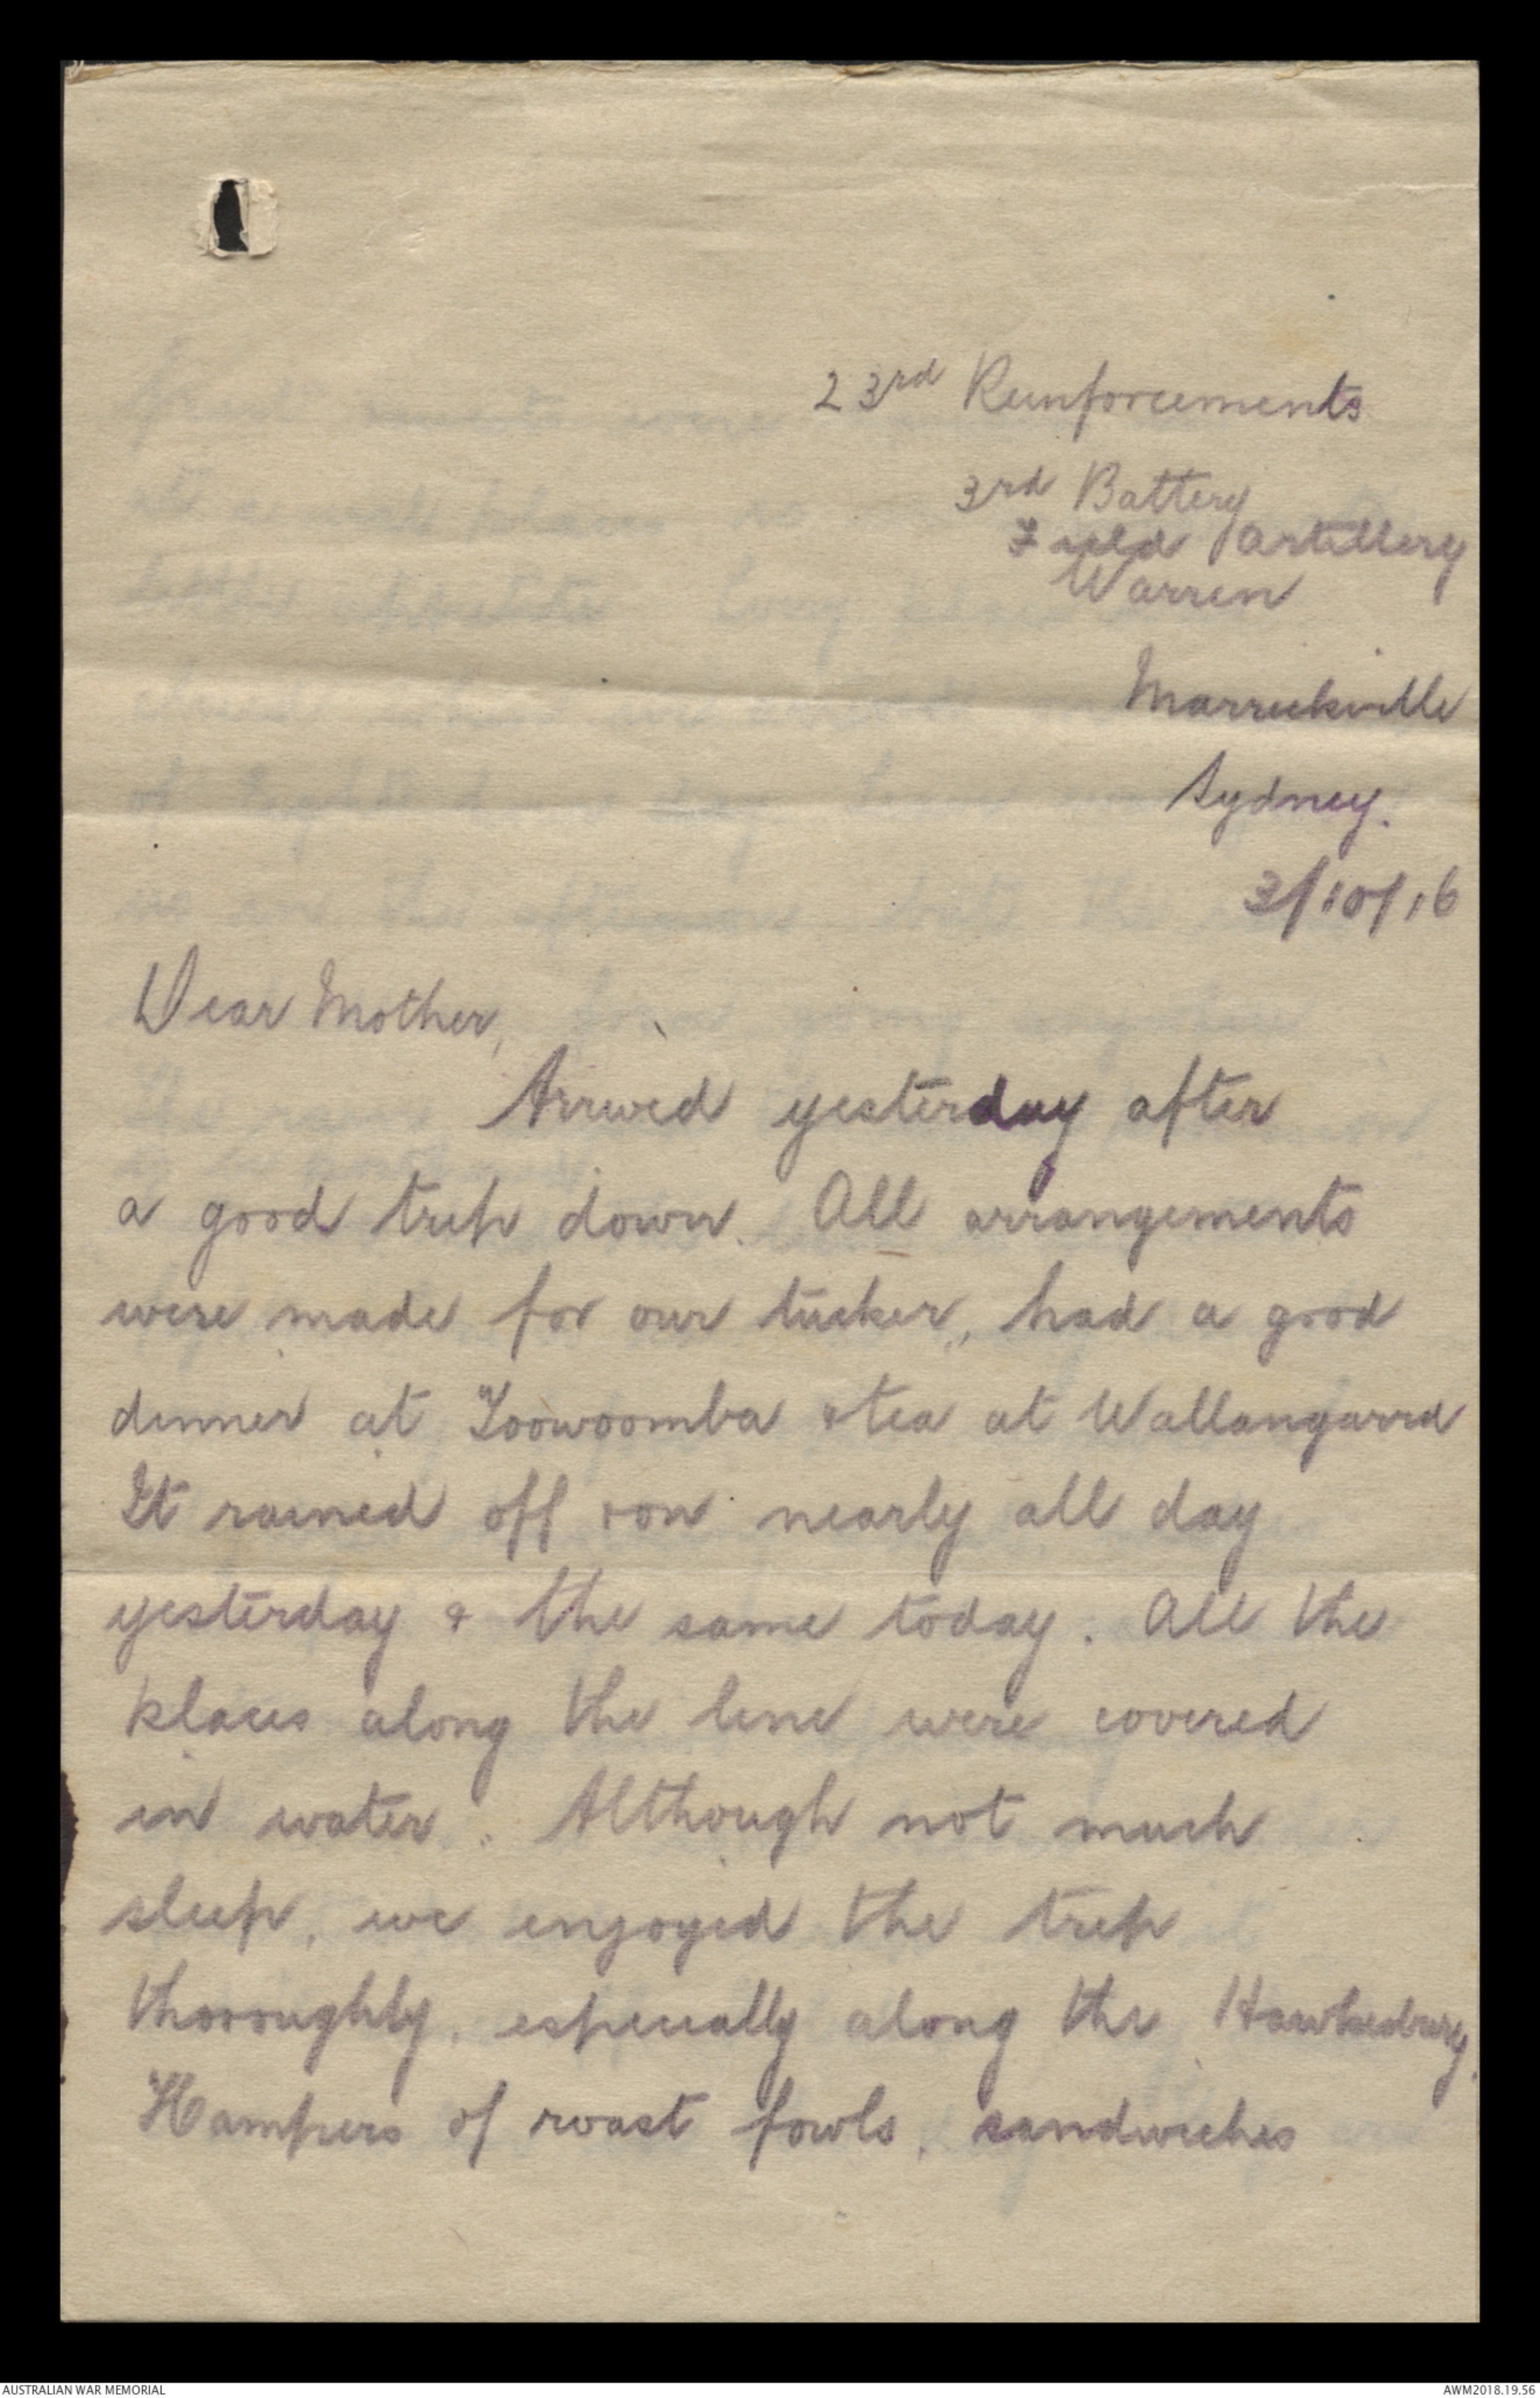 23rd Reinforcements
3rd Battery
Field Artillery
Warren
Marrickville
Sydney.
3/10/16
Dear Mother,
Arrived yesterday after
a good trip down. All arrangements
were made for our tucker, had a good
dinner at Toowoomba & tea at Wallangarra
It rained off & on nearly all day
yesterday & the same today. All the
places along the line were covered
in water. Although not much
sleep, we enjoyed the trip
thoroughly, especially along the Hawkesbury.
Hampers of roast fowls, sandwiches
AUSTRALIAN WAR MEMORIAL
AWM2018.19.56